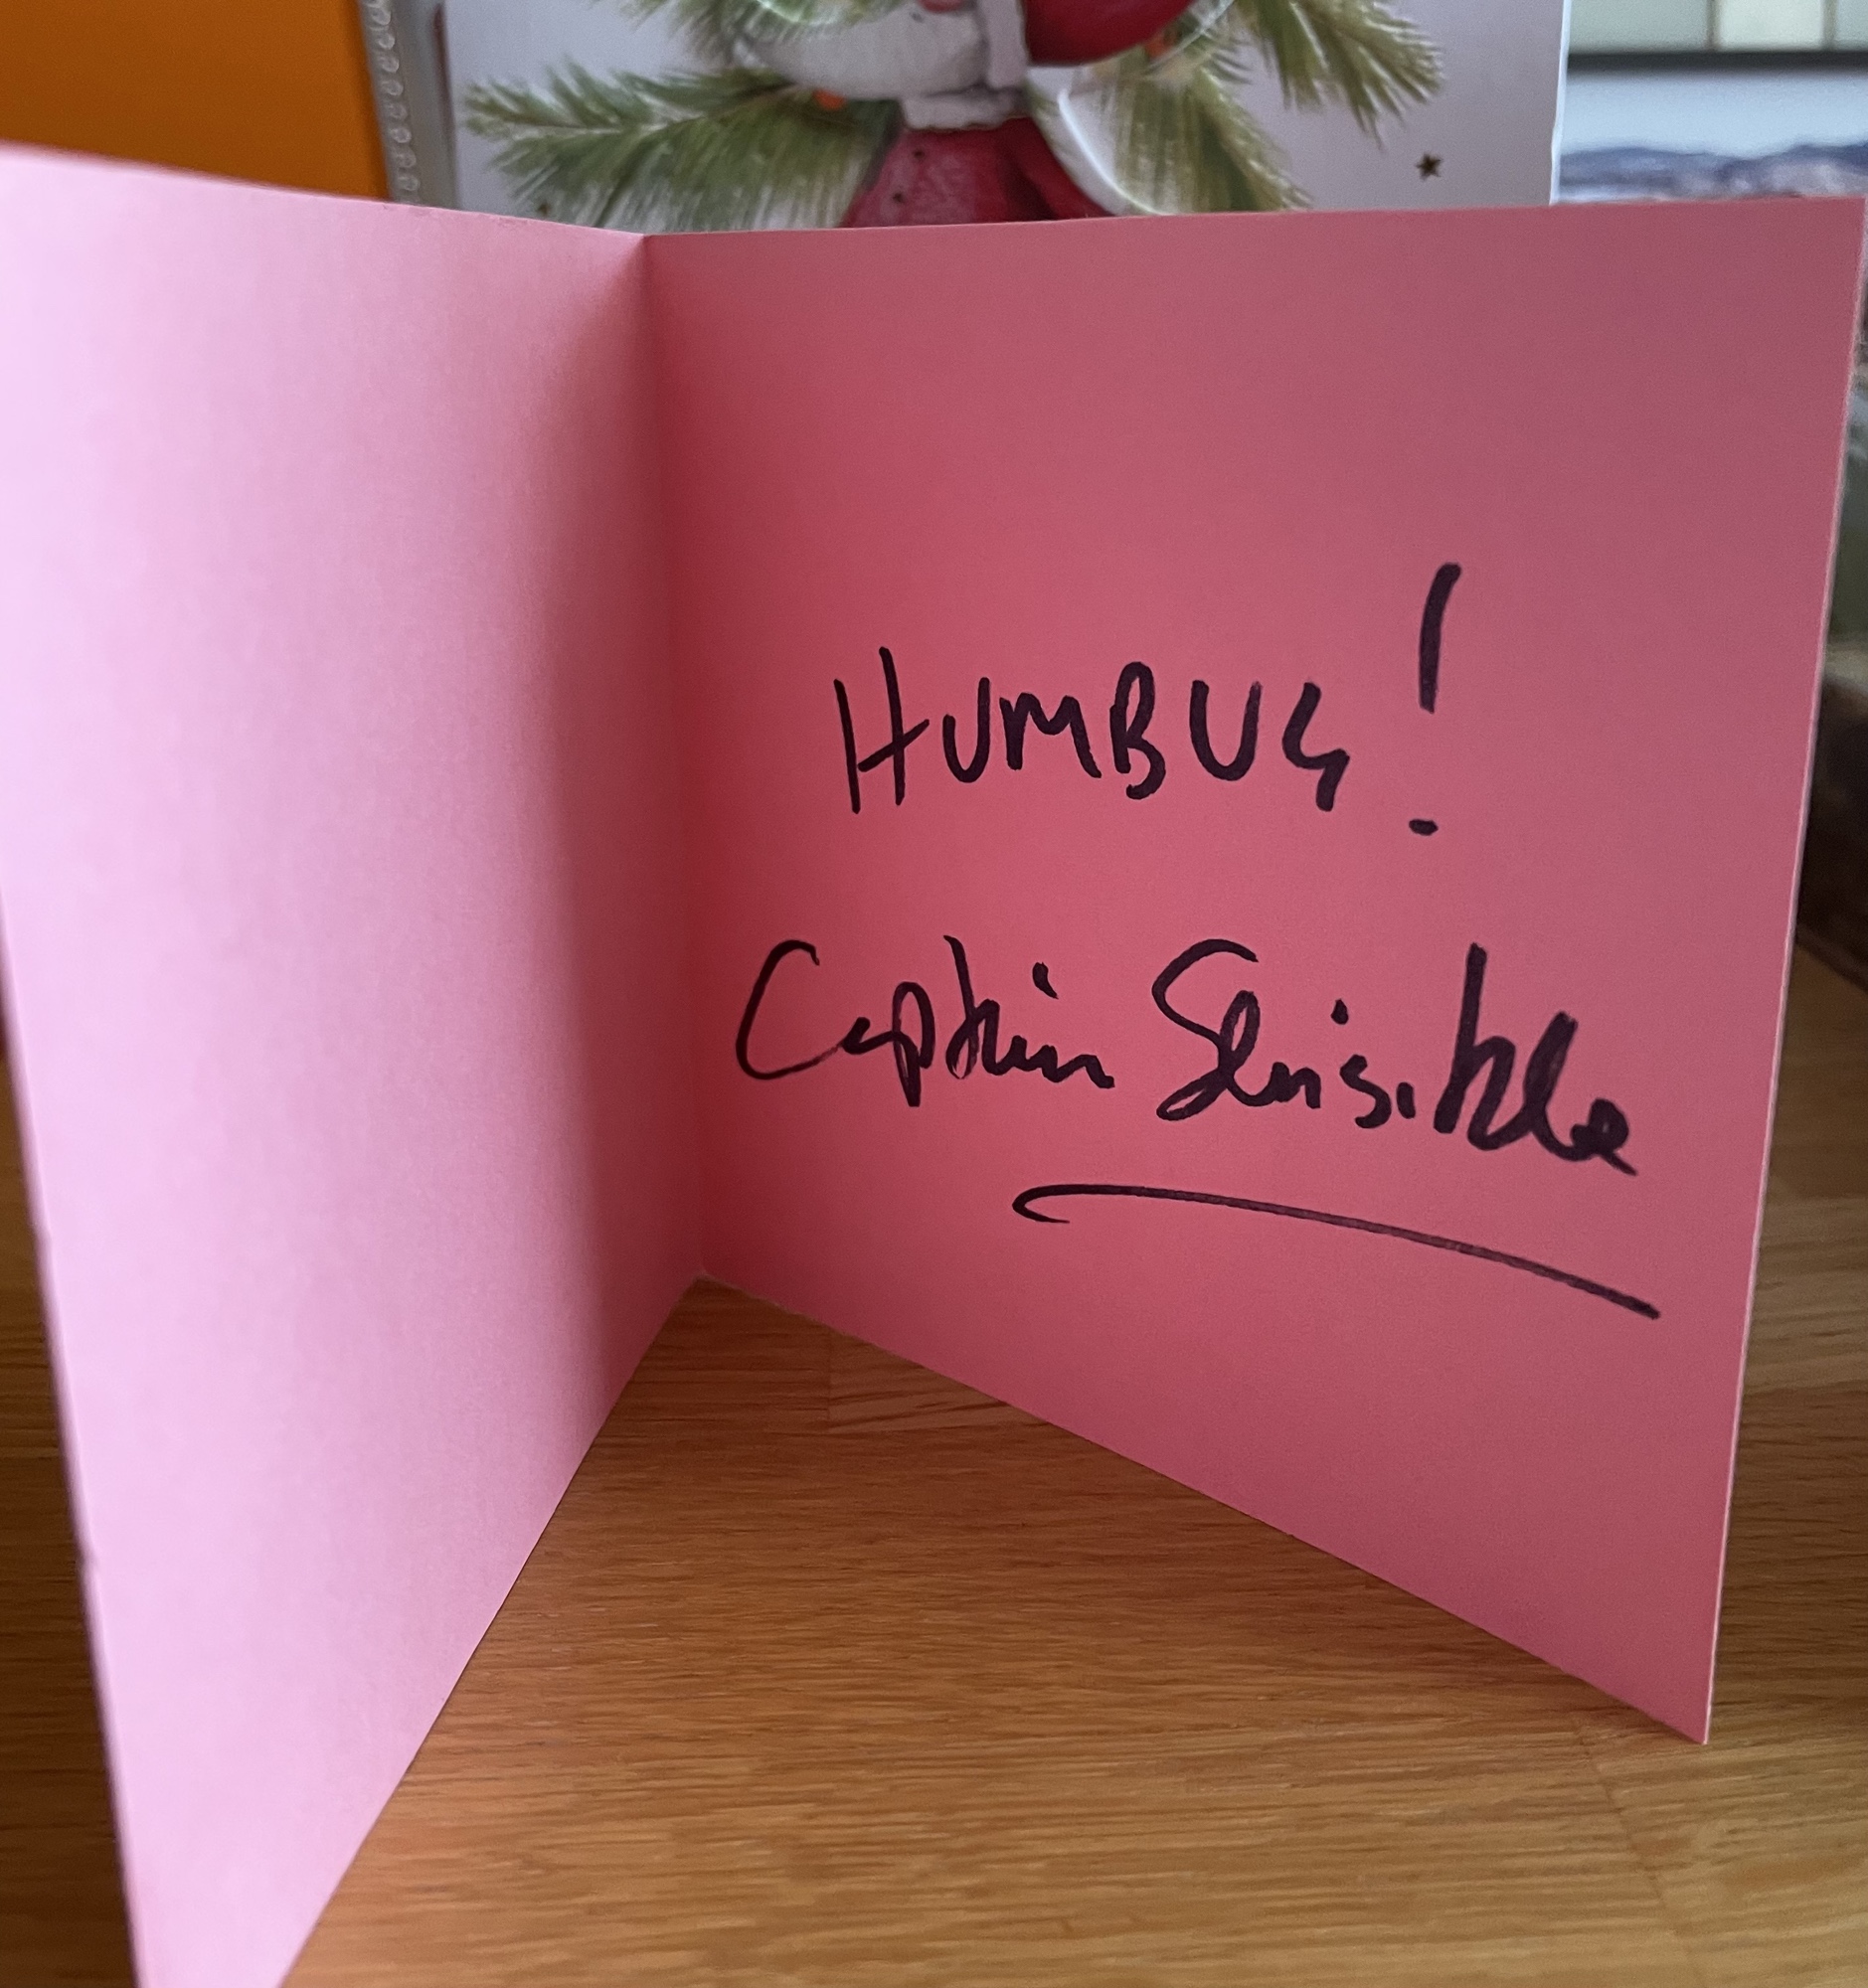 HUMBUG!
Captain Sensible